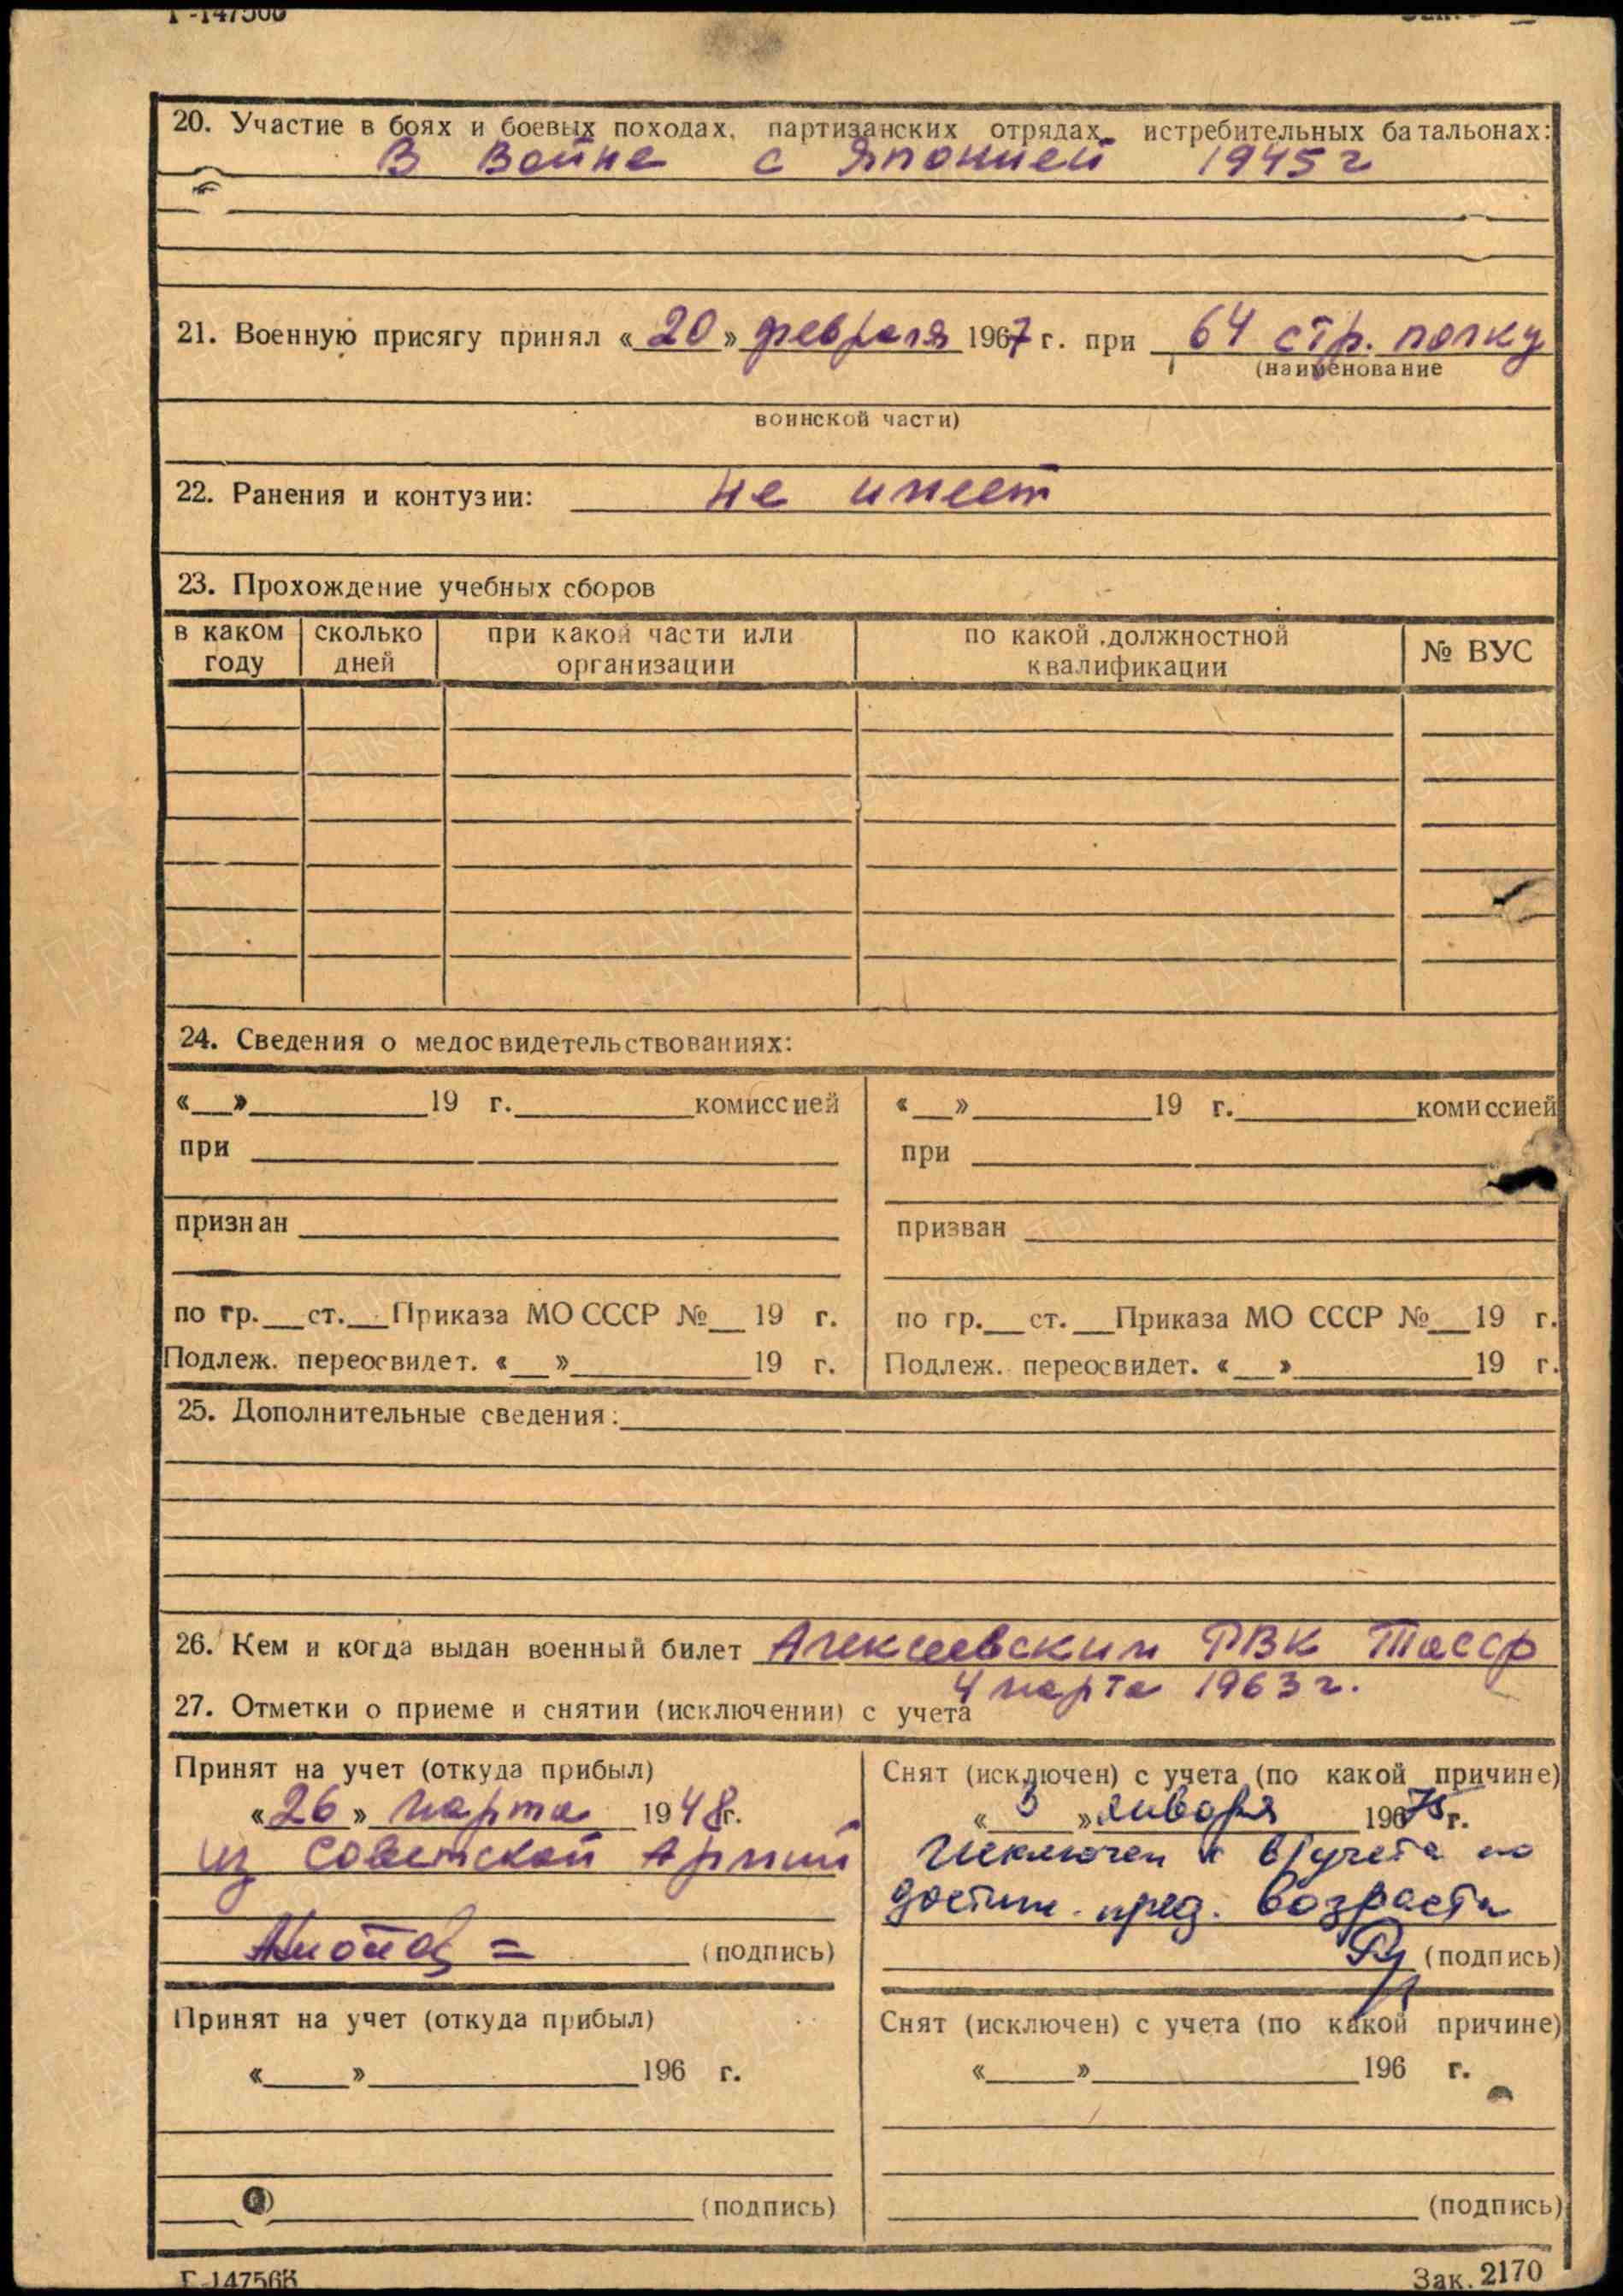 Г-147566
20. Участие в боях и боевых походах, партизанских отрядах, истребительных батальонах:
В войне с Японией 1945 г
21. Военную присягу принял «20» февраля 1967 г. при 64 стр. полку
(наименование
воинской части)
22. Ранения и контузии: не имеет
23. Прохождение учебных сборов
в каком году | сколько дней | при какой части или организации | по какой должностной квалификации | № ВУС
24. Сведения о медосвидетельствованиях:
«__»________19 г.________комиссией «__»________19 г.________комиссией
при при
признан призван
по гр.__ст.__Приказа МО СССР №__19 г. по гр.__ст.__Приказа МО СССР №__19 г.
Подлеж. переосвидет. «__»________19 г. Подлеж. переосвидет. «__»________19 г.
25. Дополнительные сведения:
26. Кем и когда выдан военный билет Алексеевским РВК Тасср
4 марта 1963 г.
27. Отметки о приеме и снятии (исключении) с учета
Принят на учет (откуда прибыл)
«26» марта 1948г.
из Советской Армии
(подпись)
Снят (исключен) с учета (по какой причине)
«3» января 1975г.
Исключен с в/учета по
достиж. пред. возраста
(подпись)
Принят на учет (откуда прибыл)
«____»________196 г.
(подпись)
Снят (исключен) с учета (по какой причине)
«____»________196 г.
(подпись)
Г-147566
Зак. 2170
ПАМЯТЬ НАРОДА
ВОЕНКОМАТЫ